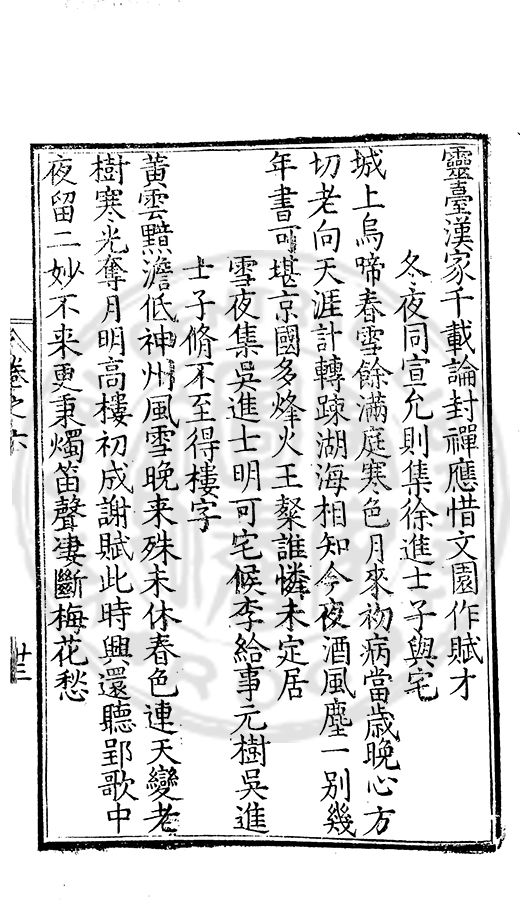 靈臺漢家千載論封禪應惜文園作賦才
冬夜同宣允則集徐進士子與宅
城上烏啼春雪餘滿庭寒色月來初病當歲晚心方
切老向天涯計轉踈湖海相知今夜酒風塵一別幾
年書可堪京國多烽火王粲誰憐未定居
雪夜集吳進士明可宅候李給事元樹吳進
士子脩不至得樓字
黃雲黯澹低神州風雪晚来殊未休春色連天變老
樹寒光奪月明高樓初成謝賦此時興還聽郢歌中
夜留二妙不来更秉燭笛聲凄斷梅花愁
卷之六
廿三